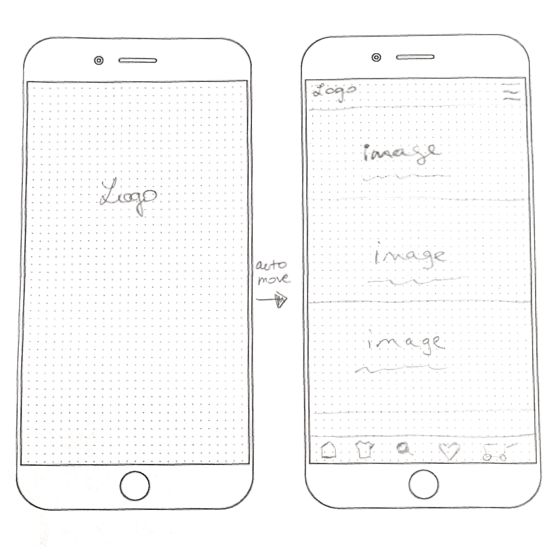 Logo
auto
move
Logo
image
image
image